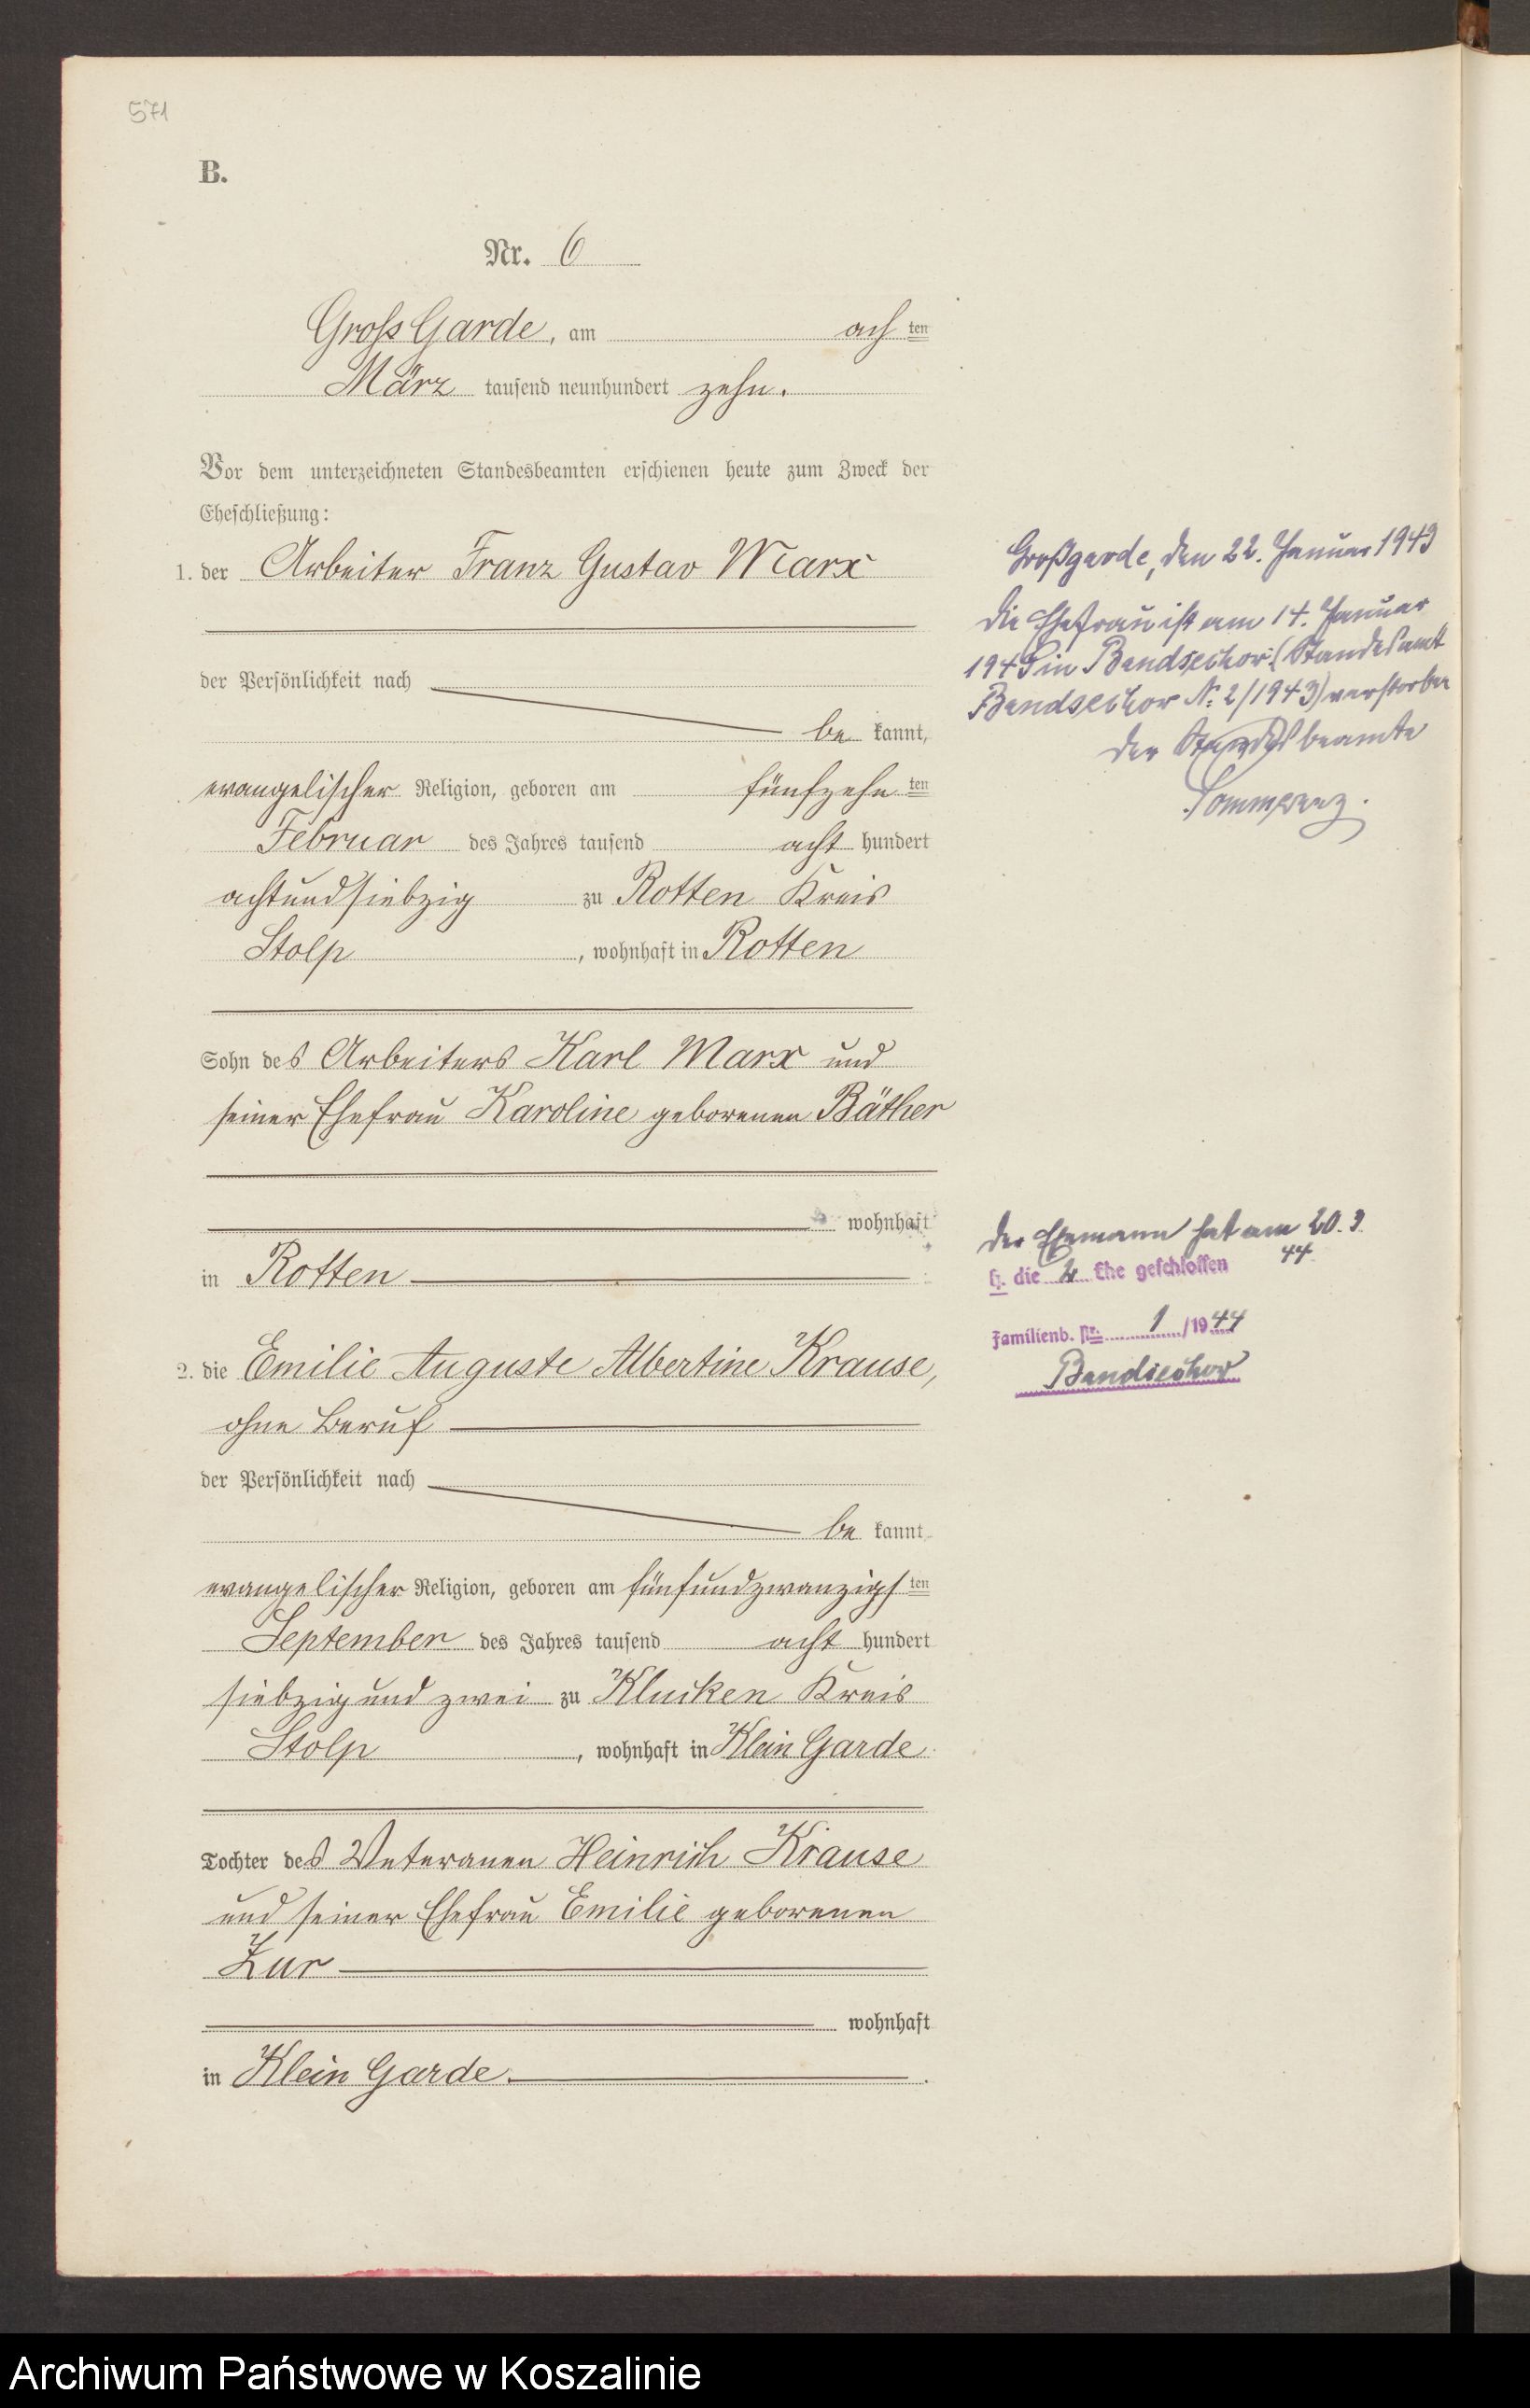 571
B.
Nr. 6
Gross Garde, am ach ten
März tausend neunhundert zehn.
Vor dem unterzeichneten Standesbeamten erschienen heute zum Zweck der
Eheschließung:
1. der Arbeiter Franz Gustav Marx
der Persönlichkeit nach
be kannt,
evangelischer Religion, geboren am fünfzehn ten
Februar des Jahres tausend acht hundert
achtundsiebzig zu Rotten Kreis
Stolp, wohnhaft in Rotten
Sohn des Arbeiters Karl Marx und
seiner Ehefrau Karoline geborenen Bäther
wohnhaft
in Rotten
2. die Emilie Auguste Albertine Krause,
ohne Beruf
der Persönlichkeit nach
be kannt
evangelischer Religion, geboren am fünfundzwanzigs ten
September des Jahres tausend acht hundert
siebzig und zwei zu Klucken Kreis
Stolp, wohnhaft in Klein Garde
Tochter des Veteranen Heinrich Krause
und seiner Ehefrau Emilie geborenen
Zur
wohnhaft
in Klein Garde.
Großgarde, den 22. Januar 1943
Die Ehefrau ist am 14. Januar
1943 in Bandsechow (Standesamt
Bandsechow Nr. 2/1943) verstorben
Der Standesbeamte
Der Ehemann hat am 20. 3.
44
die 2. Ehe geschlossen
Familienb. Nr. 1/1944
Bandsechow
Archiwum Państwowe w Koszalinie